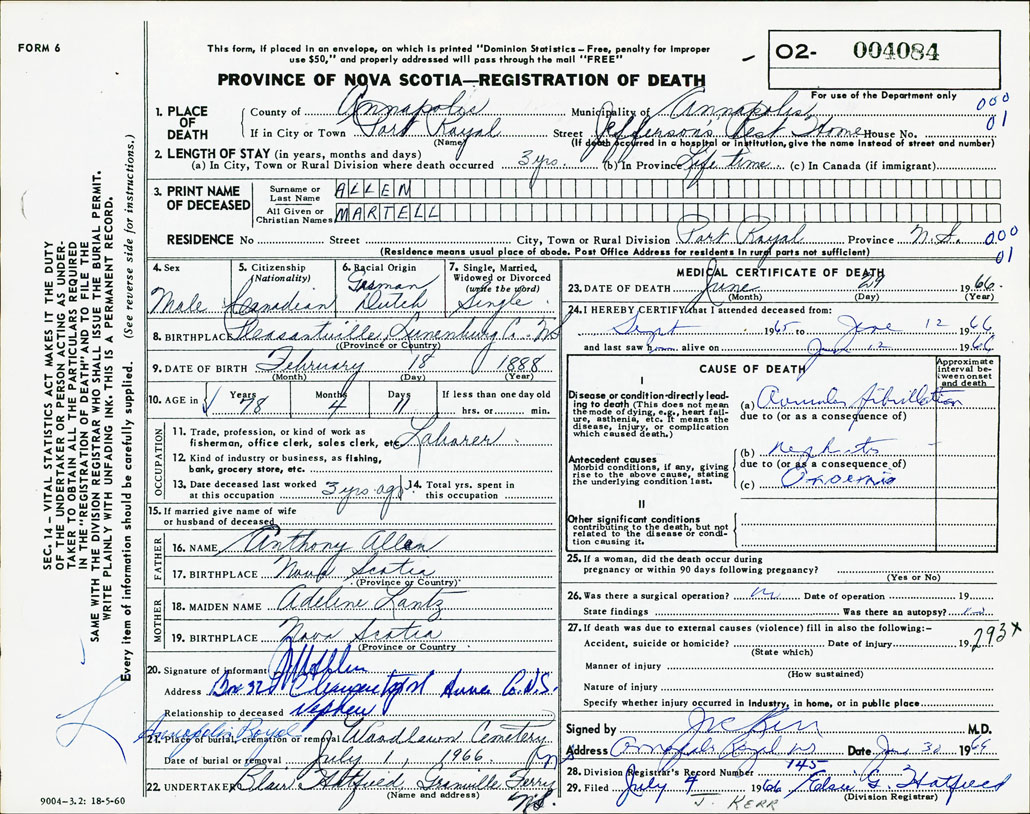 FORM 6
This form, if placed in an envelope, on which is printed "Dominion Statistics – Free, penalty for improper
use $50," and properly addressed will pass through the mail "FREE"
O2- 004084
For use of the Department only
PROVINCE OF NOVA SCOTIA—REGISTRATION OF DEATH
000
01
1. PLACE OF DEATH
County of Annapolis Municipality of Annapolis
If in City or Town Port Royal Street Jefferson's Rest Home House No.
(Name) (If death occurred in a hospital or institution, give the name instead of street and number)
2. LENGTH OF STAY (in years, months and days)
(a) In City, Town or Rural Division where death occurred 3 yrs. (b) In Province Life time (c) In Canada (if immigrant)
3. PRINT NAME OF DECEASED
Surname or Last Name ALLEN
All Given or Christian Names MARTELL
RESIDENCE No Street City, Town or Rural Division Port Royal Province N.S. 000
01
(Residence means usual place of abode. Post Office Address for residents in rural parts not sufficient)
4. Sex Male
5. Citizenship (Nationality) Canadian
6. Racial Origin German Dutch
7. Single, Married, Widowed or Divorced (write the word) Single
8. BIRTHPLACE Pleasantville, Lunenburg Co. NS
(Province or Country)
9. DATE OF BIRTH February 18 1888
(Month) (Day) (Year)
10. AGE in Years 78 Months 4 Days 11 If less than one day old
hrs. or min.
OCCUPATION
11. Trade, profession, or kind of work as
fisherman, office clerk, sales clerk, etc. Laborer
12. Kind of industry or business, as fishing,
bank, grocery store, etc.
13. Date deceased last worked at this occupation 3 yrs ago 14. Total yrs. spent in this occupation
15. If married give name of wife
or husband of deceased
FATHER
16. NAME Anthony Allen
17. BIRTHPLACE Nova Scotia
(Province or Country)
MOTHER
18. MAIDEN NAME Adeline Lantz
19. BIRTHPLACE Nova Scotia
(Province or Country
20. Signature of informant
Address Box 32 Clementsport Anna Co. N.S.
Relationship to deceased Nephew
Annapolis Royal
21. Place of burial, cremation or removal Woodlawn Cemetery
Date of burial or removal July 1 1966
22. UNDERTAKER Blair Hatfield, Granville Ferry
(Name and address) N.S.
9004–3.2: 18-5-60
MEDICAL CERTIFICATE OF DEATH
23. DATE OF DEATH June 29 1966
(Month) (Day) (Year)
24. I HEREBY CERTIFY that I attended deceased from:
Sept 1965 to June 12 1966
and last saw him alive on June 12 1966
CAUSE OF DEATH
Approximate interval between onset and death
I
Disease or condition-directly leading to death (This does not mean the mode of dying, e.g., heart failure, asthenia, etc. It means the disease, injury, or complication which caused death.)
(a) fibrillation
due to (or as a consequence of)
Antecedent causes
Morbid conditions, if any, giving rise to the above cause, stating the underlying condition last.
(b) nephritis
due to (or as a consequence of)
(c)
II
Other significant conditions
contributing to the death, but not related to the disease or condition causing it.
25. If a woman, did the death occur during
pregnancy or within 90 days following pregnancy?
(Yes or No)
26. Was there a surgical operation? no Date of operation 19
State findings Was there an autopsy? no
27. If death was due to external causes (violence) fill in also the following:–
Accident, suicide or homicide? Date of injury 19 293x
(State which)
Manner of injury
(How sustained)
Nature of injury
Specify whether injury occurred in Industry, in home, or in public place
Signed by J M Kerr M.D.
Address Annapolis Royal NS Date June 30 1966
28. Division Registrar's Record Number 145
29. Filed July 4 1966 Elsie G. Hatfield
(Division Registrar)
J. KERR
SEC. 14 – VITAL STATISTICS ACT MAKES IT THE DUTY
OF THE UNDERTAKER OR PERSON ACTING AS UNDER-
TAKER TO OBTAIN ALL THE PARTICULARS REQUIRED
IN THE "REGISTRATION OF DEATH" AND TO FILE THE
SAME WITH THE DIVISION REGISTRAR WHO SHALL ISSUE THE BURIAL PERMIT.
WRITE PLAINLY WITH UNFADING INK. THIS IS A PERMANENT RECORD.
Every item of information should be carefully supplied. (See reverse side for instructions.)